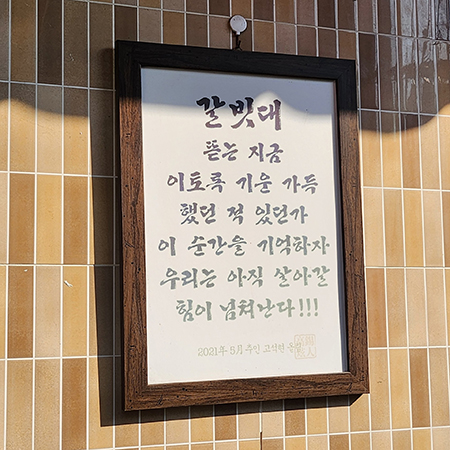 갈빗대
뜯는 지금
이토록 기운 가득
했던 적 있던가
이 순간을 기억하자
우리는 아직 살아갈
힘이 넘쳐난다!!!
2021年 5月 주인